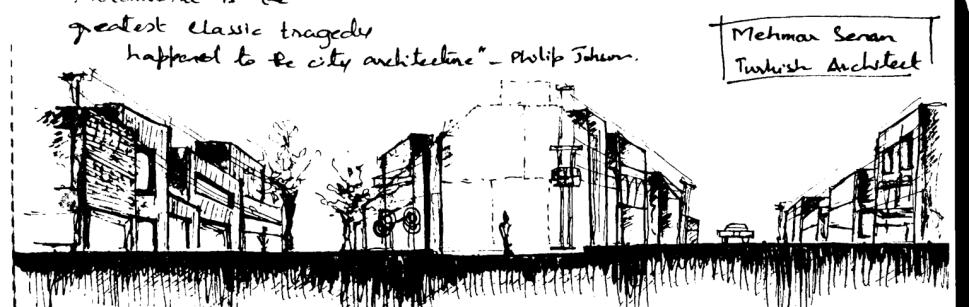 is
greatest classic tragedy
happened to the city architecture" - Philip Johnson.
Mehmar Senan
Turkish Architect